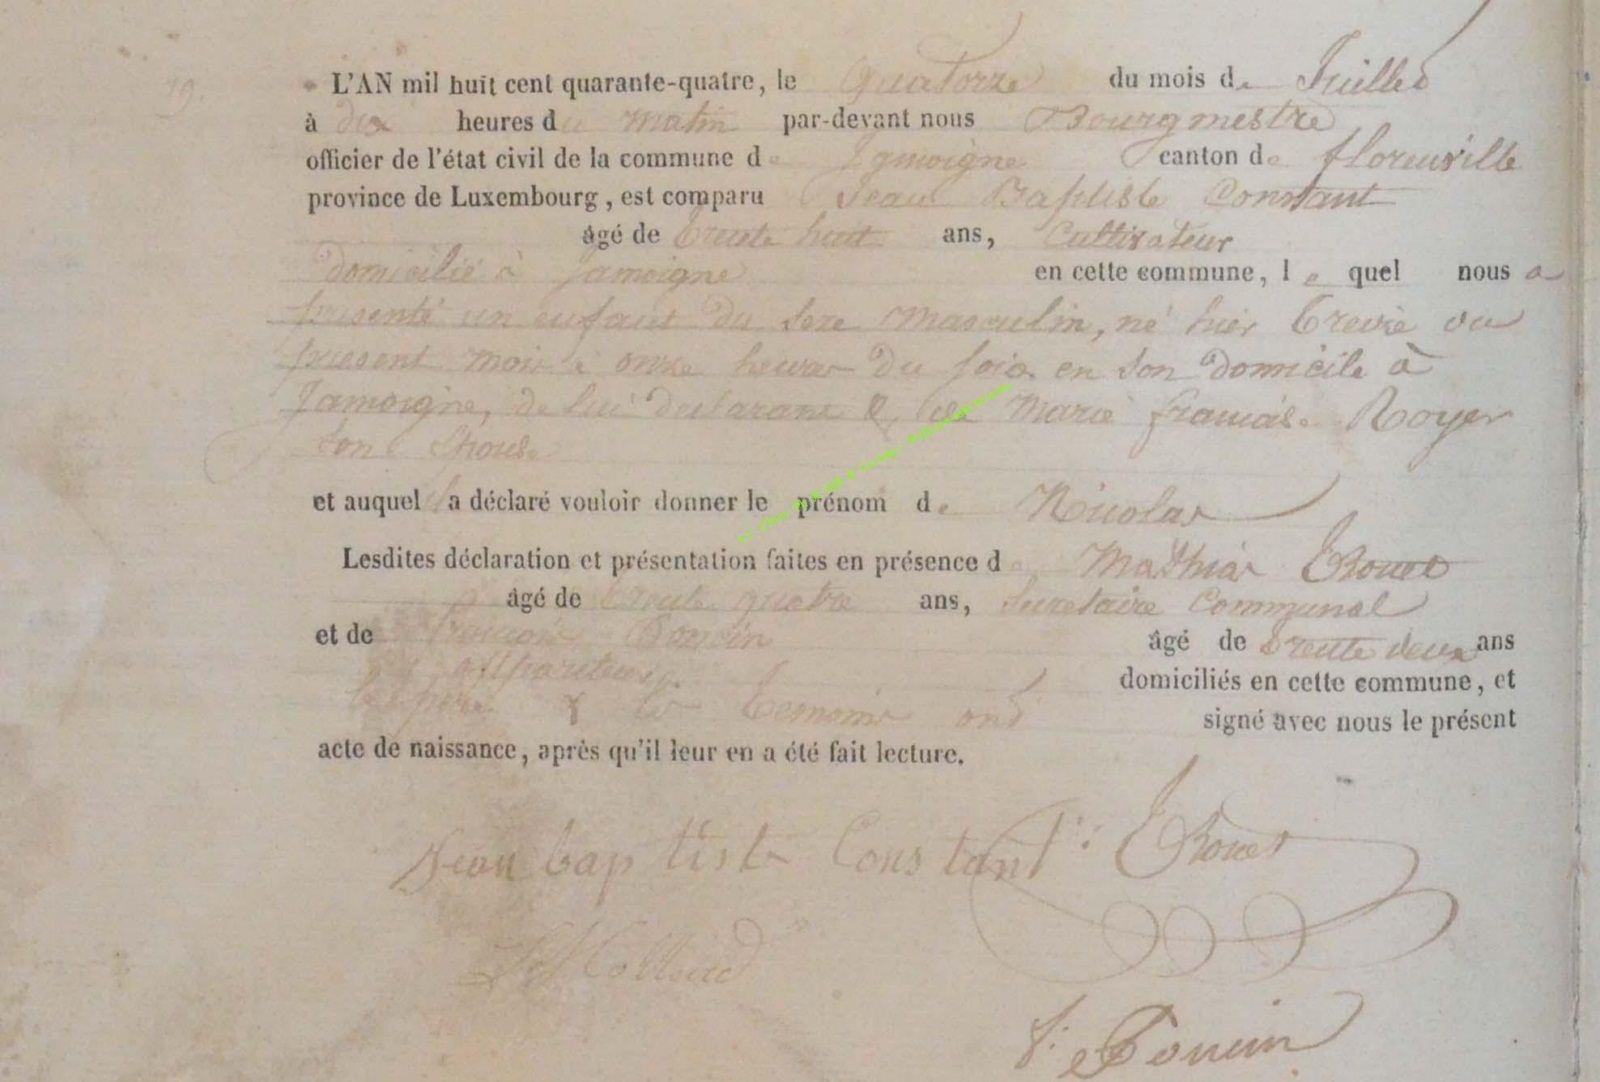 19.
L'AN mil huit cent quarante-quatre, le quatorze du mois de Juillet
à dix heures du matin par-devant nous Bourgmestre
officier de l'état civil de la commune de Jamoigne canton de florenville
province de Luxembourg, est comparu Jean Baptiste Constant
âgé de trente huit ans, Cultivateur
domicilié à Jamoigne en cette commune, lequel nous a
présenté un enfant du sexe Masculin, né hier treize du
présent mois à onze heures du soir en son domicile à
Jamoigne, de lui déclarant & de Marie françoise Royer
son Epouse
et auquel il a déclaré vouloir donner le prénom de Nicolas
Lesdites déclaration et présentation faites en présence de Mathias
âgé de trente quatre ans, Secretaire Communal
et de françois Ponsin âgé de trente deux ans
appariteur domiciliés en cette commune, et
le père & les temoins ont signé avec nous le présent
acte de naissance, après qu'il leur en a été fait lecture.
Jean baptiste Constant